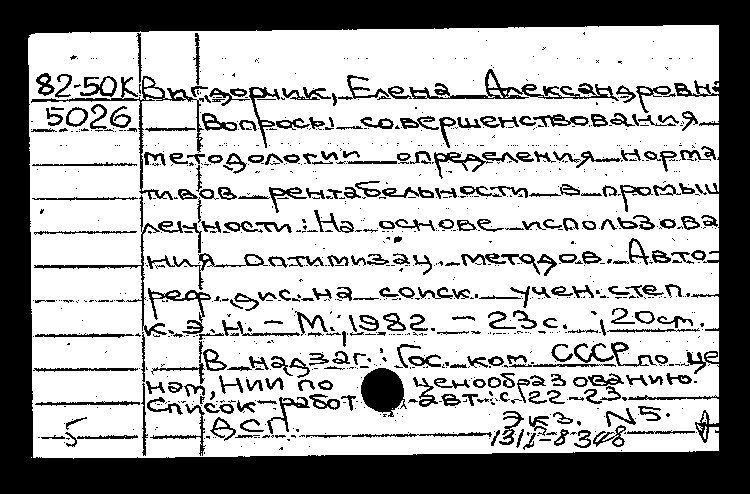 82-50К Вигдорчик, Елена Александровна
5026 Вопросы совершенствования
методологии определения норма
тивов рентабельности в промыш
ленности: На основе использова
ния оптимизац. методов. Авто-
реф. дис. на соиск. учен. степ.
к.э.н. - М., 1982. - 23 с. ; 20 см.
В надзаг.: Гос. ком. СССР по це
нам, НИИ по ценообразованию.
Список работ авт.: с. 22-23
ДСП. Экз. N5.
5